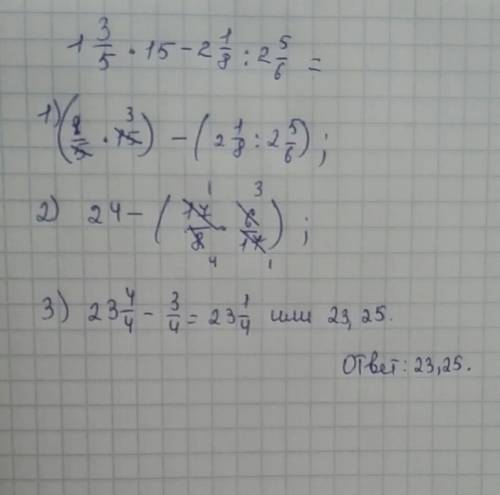 1 3/5 · 15 − 2 1/8 : 2 5/6 =
1) (8/5 · 15 3) − (2 1/8 : 2 5/6);
2) 24 − (17 1/8 4 · 6 3/17 1);
3) 23 4/4 − 3/4 = 23 1/4 или 23,25.
Ответ: 23,25.